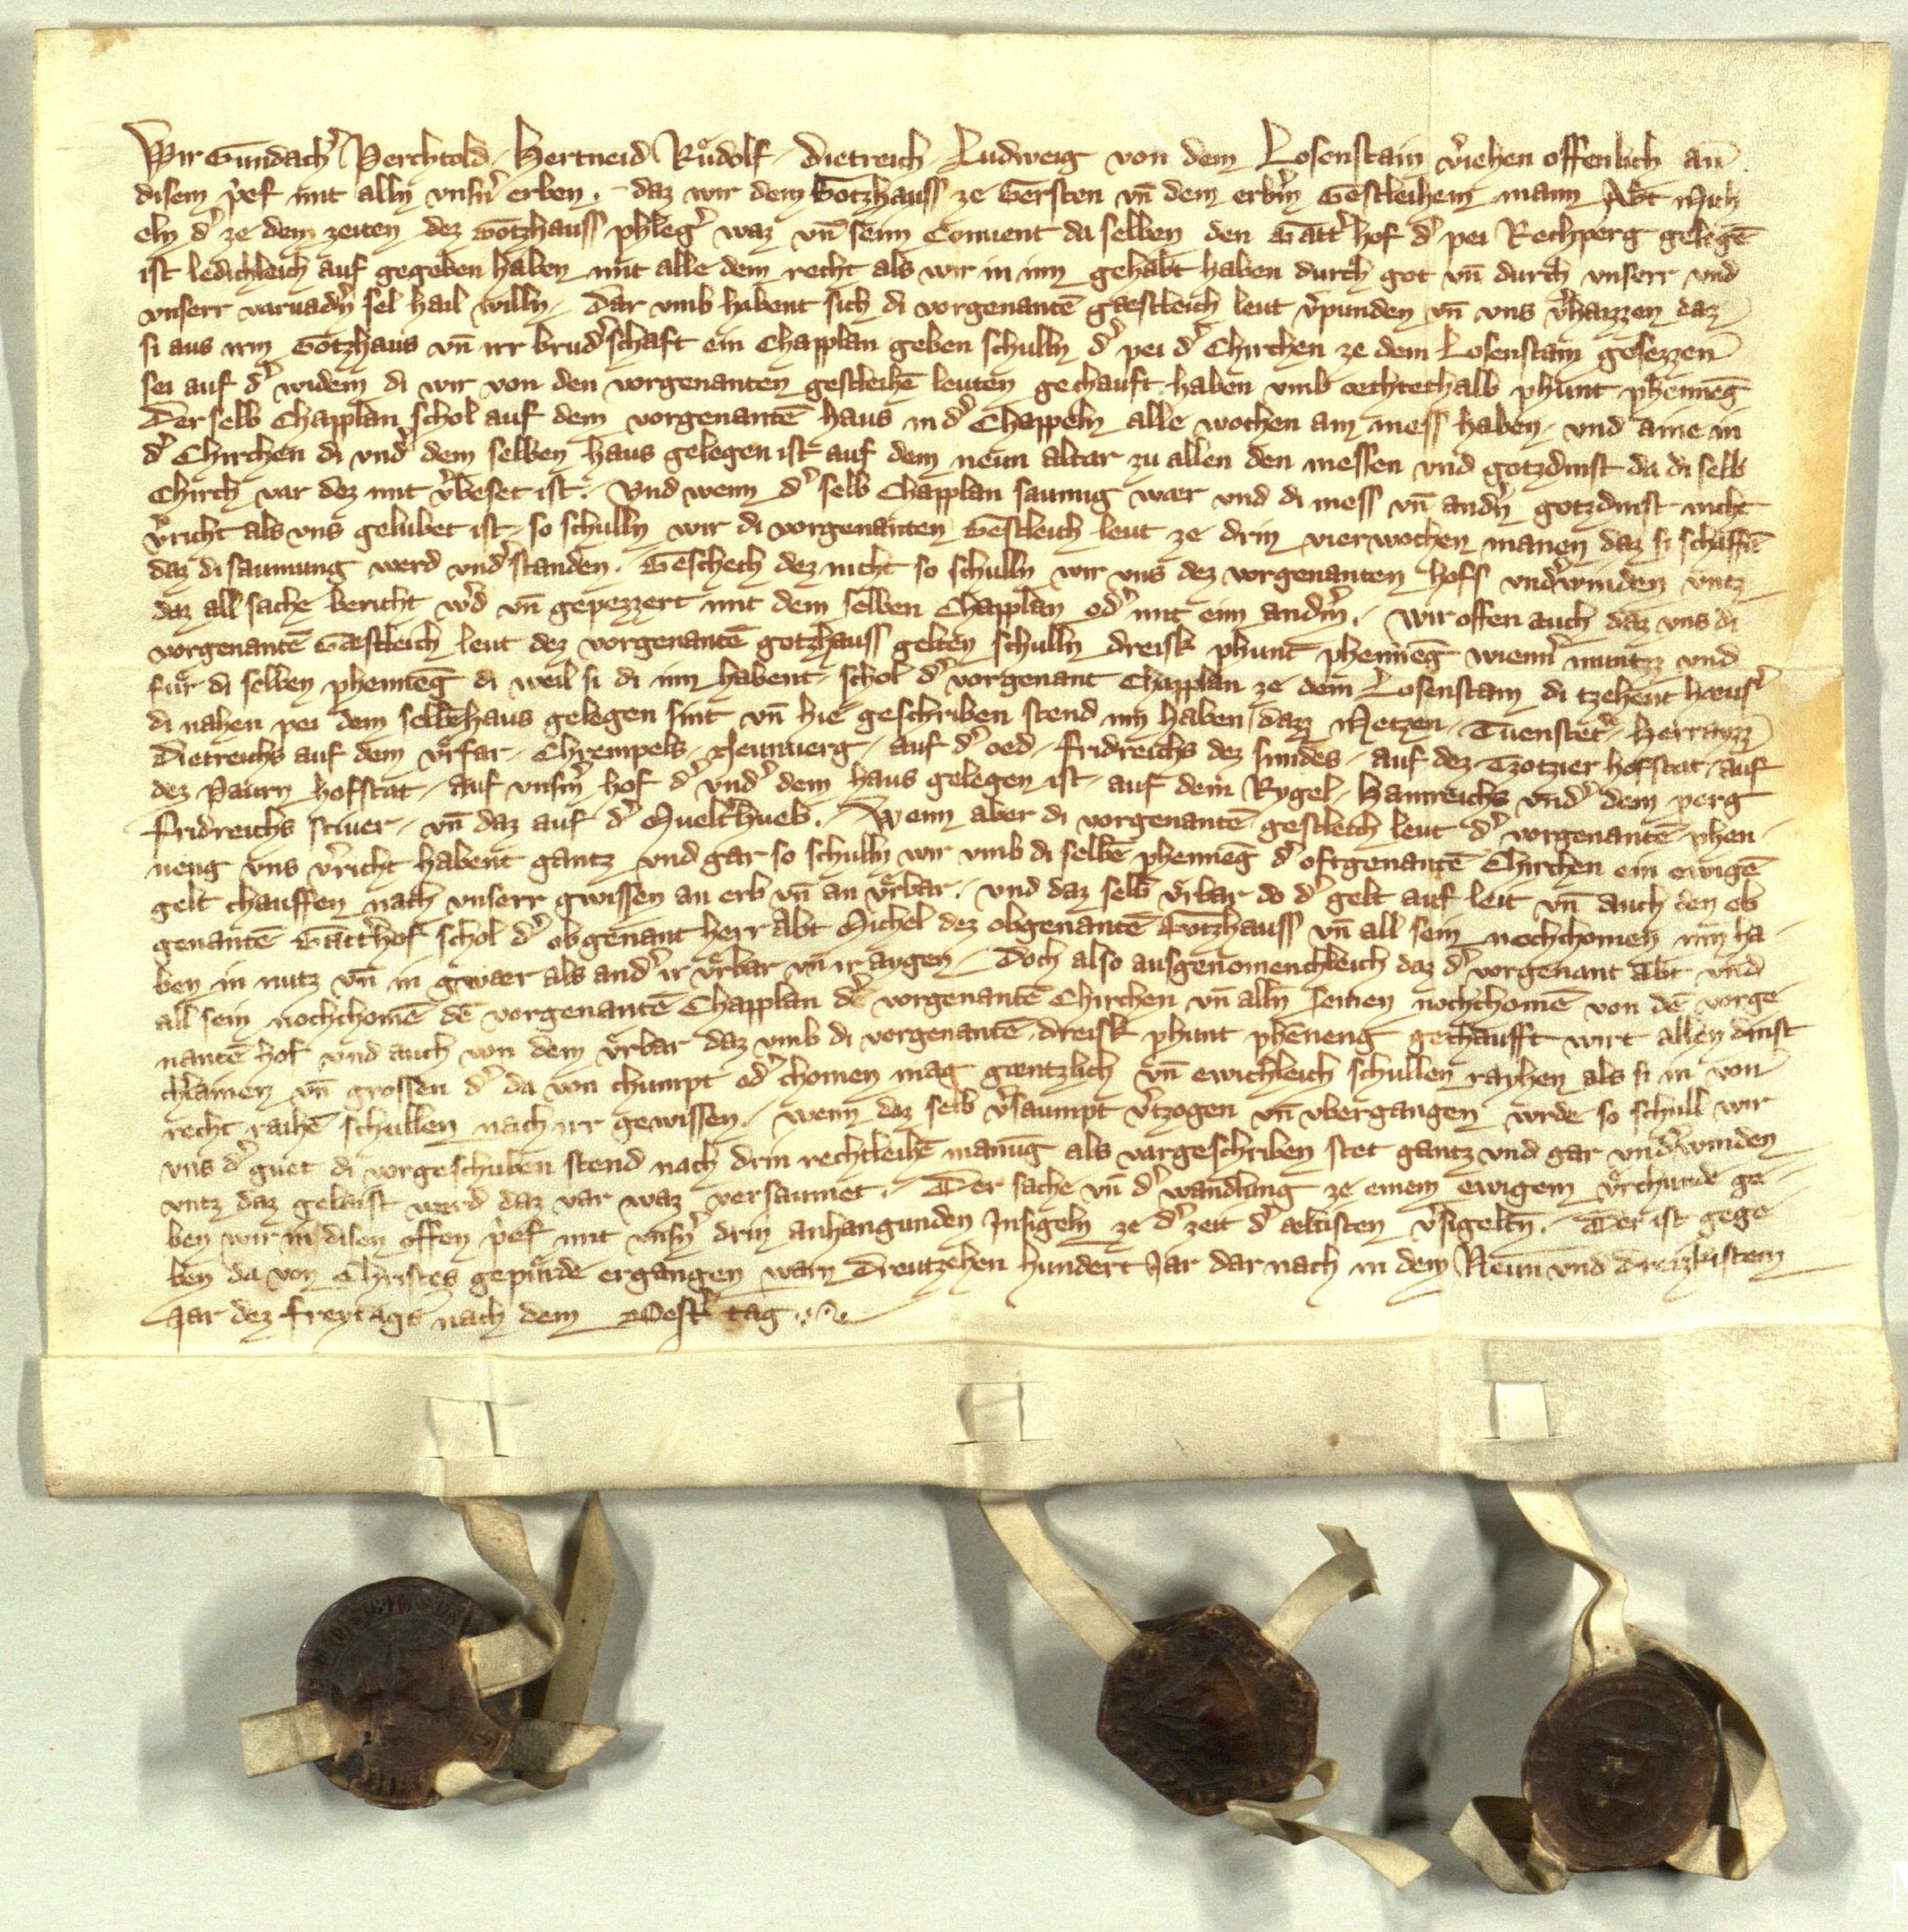 Wir Gundach̾ Perchtold Hertneid Ruͦdolf Dietreich Ludweig von dem Losenstain v̾iehen offenlich an
disem p̾ef mit alln vnsn̾ erben. daz wir dem Gotzhauss ze Gersten vn̄ dem erbn̾ Gestleihem mann Abt Mich
eln d̾ ze dem zeiten dez Gotzhauss phleg̾ waz vn̄ seim Conuent da selben den Gatt̾hof d̾ pei Rechperg gelegē
ist ledichleich auf gegeben haben mit alle dem recht als wir in inn gehabt haben durch got vn̄ durch vnserr vnd
vnserr varuadn̾ sel hail willn. Dar vmb habent sich di vorgenantē gaestleich leut v̾punden vn̄ vns v̾haizzen daz
si aus irm Gotzhaus vn̄ irr brud̾schaft ein Chapplan geben schulln d̾ pei d̾ Chirchen ze dem Losenstain gesezzen
sei auf d̾ widem di wir von den vorgenanten gestleihē leuten gechauft haben vmb aechtethalb phunt phenneg
Der selb Chapplan schol auf dem vorgenantē haus in d̾ Chappeln alle wochen ain mess haben vnd aine in
d̾ Chirchen di vnd̾ dem selben haus gelegen ist auf dem neun altar zu allen den messen vnd gotzdinst da di selb
Chirch var dez mit v̾beset ist. Vnd wenn d̾ selb Chapplan saumig waer vnd di mess vn̄ andn̾ gotzdinst nicht
v̾richt als vns gelubet ist so schulln wir di vorgenanten Gestleich leut ze drin vierwochen manen daz si schaffn̄
daz di saumung werd vnd̾standen. Geschech dez nicht so schulln wir vns dez vorgenanten hofs vnd̾winden vntz
daz all sache bericht w̾d vn̄ gepezzert mit dem selben Chapplan od̾ mit eim andm̾. Wir offen auch daz vns di
vorgenantē Gaestleich leut dez vorgenantē gotzhauss gelten schulln dreisk phunt phenneg wienn̾ munzz vnd
fuͤr di selben phenneg di weil si di inn habent schol d̾ vorgenant Chapplan ze dem Losenstain di tzehent haeus̾
di nahen pei dem selbēhaus gelegen sint vn̄ hie geschriben stend inn haben daz Metzen Tuenstet̾ Herranzz
Dietreichs auf dem vͤrfar Chrempels auf d̾ oed fridreichs dez smides auf dez Gotzier hofstat auf
dez Paurn hofstat auf vnsm̾ hof d̾ vnd̾ dem haus gelegen ist auf dem Rygel Hainreichs vnd̾ dem perg
Fridreichs stiuer vn̄ daz auf d̾ Muelt̾hueb. Wenn aber di vorgenantē gestleich leut d̾ vorgenantē phen
neng vns v̾richt habent gantz vnd gar so schulln wir vmb di selbē phenneg d̾ oftgenantē Chirchen ein ewigē
gelt chauffen nach vnserr gwissen an erb vn̄ an vͤrbar. vnd daz selb vͤrbar do d̾ gelt auf leit vn̄ auch den ob
genantē Gatt̾hof schol d̾ obgenant herr Abt Michel dez obgenantē Gotzhauss vn̄ all sein nochchomen inn ha
ben in nutz vn̄ in gwaer als and̾ ir vͤrbar vn̄ ir aygen. Doch also ausgenomenchleich daz d̾ vorgenant Abt vnd
all sein nochchomē dē vorgenantē Chapplan d̾ vorgenantē Chirchen vn̄ alln̄ seinen nochchomē von dē vorge
nantē hof vnd auch von dem vͤrbar daz vmb di vorgenantē dreisk phunt phenneng gechaufft wirt allen dinst
chlainen vn̄ grossen d̾ da von chumpt od̾ chomen mag gaentzlich vn̄ ewichleich schullen rayhen als si in von
recht raihē schullen nach irr gewissen. Wenn daz selb v̾saumpt v̾tzogen vn̄ vbergangen wrde so schull wir
vns d̾ guet di vorgeschriben stend noch drin rechtleihē manūg als vargeschriben stet gantz vnd gar vnd̾winden
vntz daz gelaist werd daz var waz versaumet. Der sache vn̄ d̾ wandlung ze einem ewigem vͤrchunde ge
ben wir in disen offen p̾ef mit vnsn̾ drin anhangunden Insigeln ze d̾ zeit d̾ aeltisten v̾sigeltn̄. Der ist gege
ben da von Christes gepuͤrde ergangen warn Dreutzehen hundert Jar dar nach in dem Neun vnd dreizkistem
Jar dez freytags nach dem Oest̾ tag